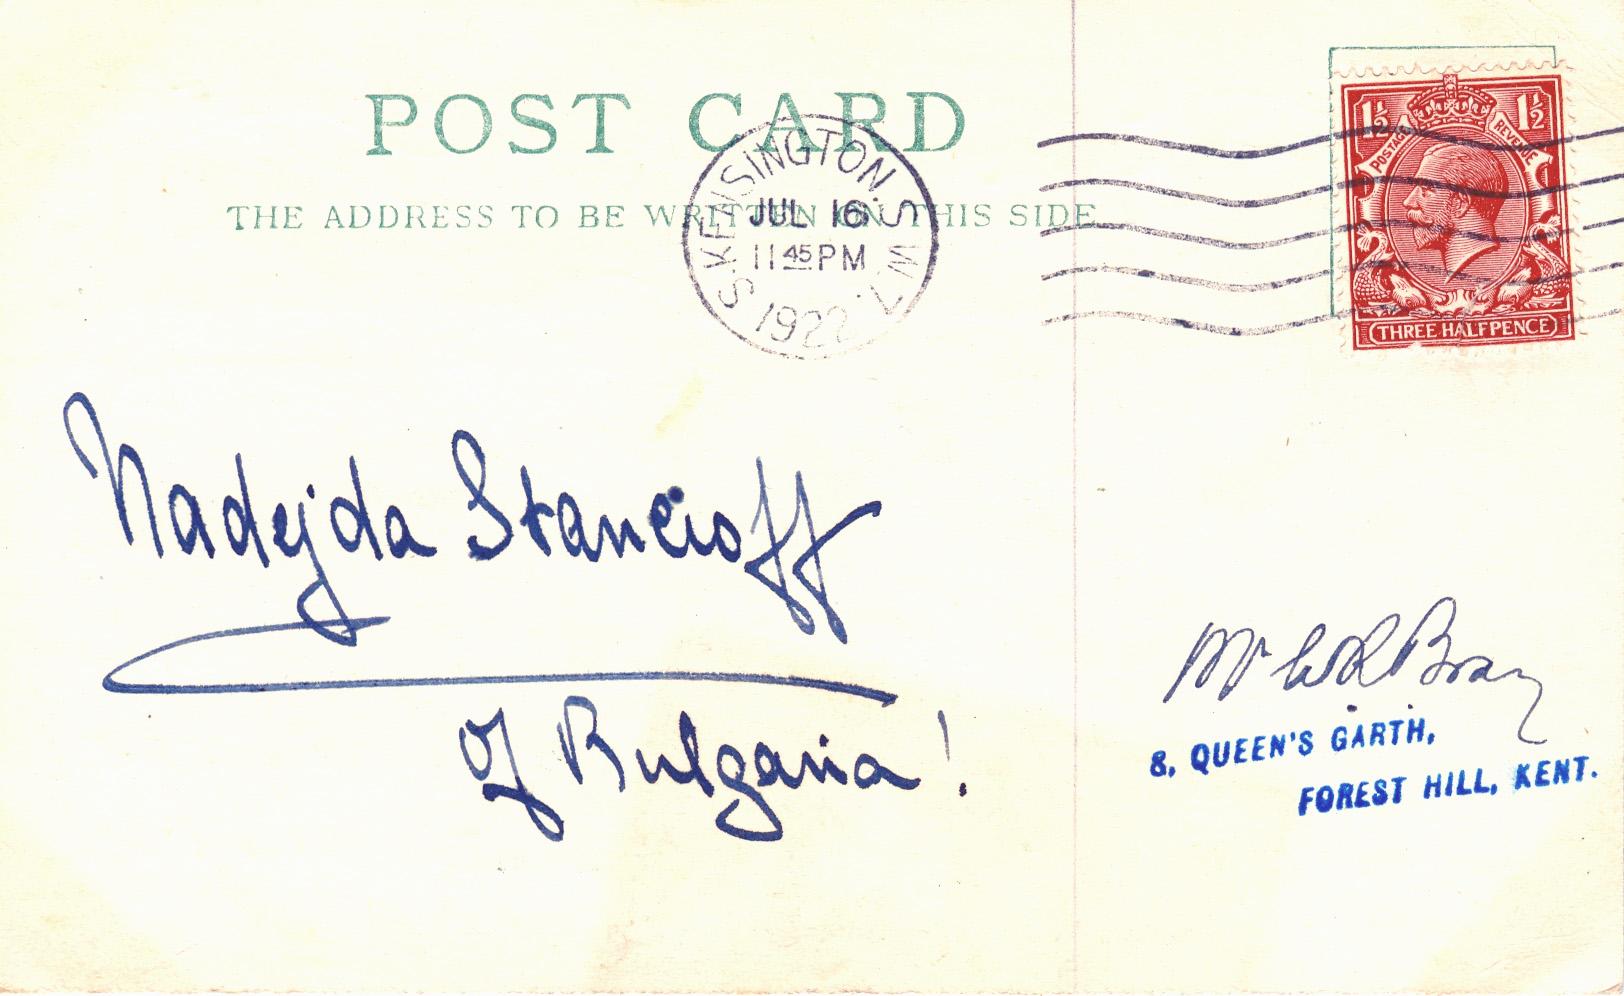 POST CARD
THE ADDRESS TO BE WRITTEN ON THIS SIDE
S. KENSINGTON. S.W.7.
JUL 16
11 45 PM
1922
1½ 1½
POSTAGE REVENUE
THREE HALFPENCE
Nadejda Stancioff
of Bulgaria!
Mr W R Bray
8, QUEEN'S GARTH,
FOREST HILL, KENT.